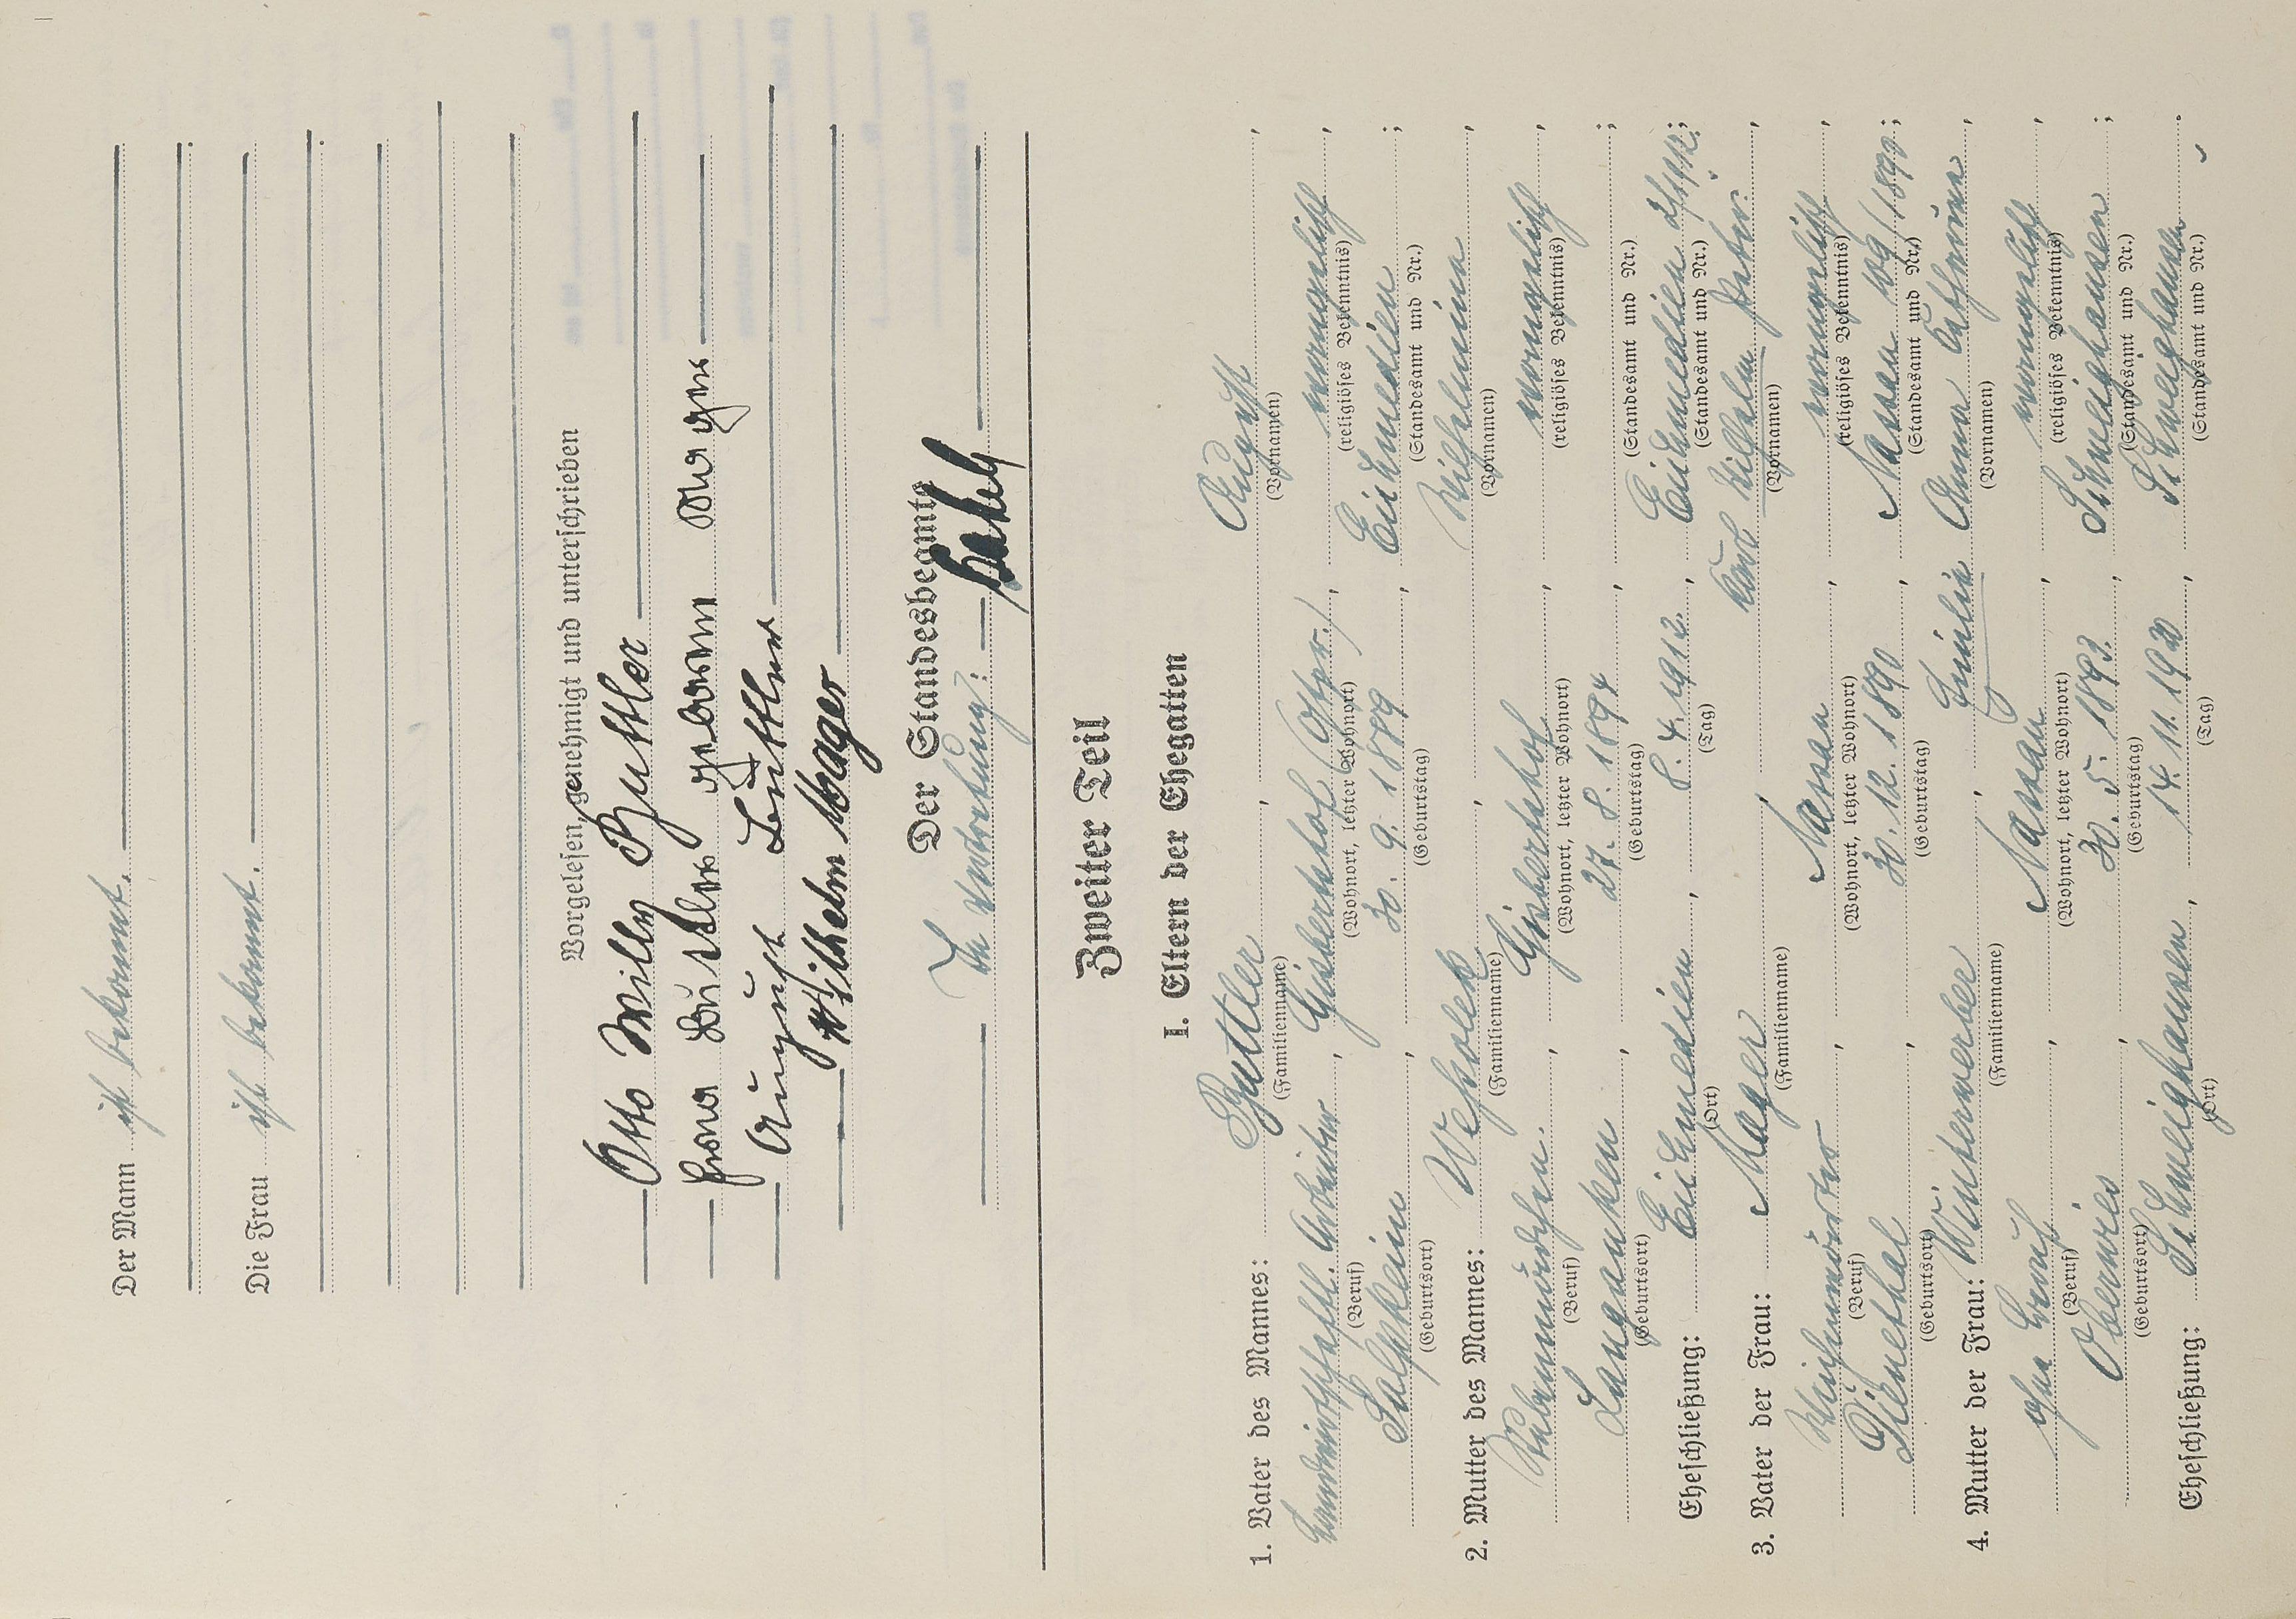 Der Mann ist bekannt.
Die Frau ist bekannt.
Vorgelesen, genehmigt und unterschrieben
Otto Willy Buttler
geboren Mager
August Buttler
Wilhelm Mager
Der Standesbeamte
In Vertretung:
Zweiter Teil
I. Eltern der Ehegatten
1. Vater des Mannes: Buttler, August,
(Familienname) (Vornamen)
landwirtschaftl. Arbeiter, Gisbertshof (Ostpr.), evangelisch
(Beruf) (Wohnort, letzter Wohnort) (religiöses Bekenntnis)
30. 9. 1889, Eichmedien;
(Geburtsort) (Geburtstag) (Standesamt und Nr.)
2. Mutter des Mannes: Wilhelmine,
(Familienname) (Vornamen)
Gisbertshof, evangelisch,
(Beruf) (Wohnort, letzter Wohnort) (religiöses Bekenntnis)
Langanken, 27. 8. 1894;
(Geburtsort) (Geburtstag) (Standesamt und Nr.)
Eheschließung: Eichmedien, 8. 4. 1912, Eichmedien
(Ort) (Tag) (Standesamt und Nr.)
3. Vater der Frau: Mager, Karl Wilhelm Peter,
(Familienname) (Vornamen)
Nassau, evangelisch,
(Beruf) (Wohnort, letzter Wohnort) (religiöses Bekenntnis)
Dienethal, 30. 12. 1890, Nassau 109/1890;
(Geburtsort) (Geburtstag) (Standesamt und Nr.)
4. Mutter der Frau: Winterwerber, Emilie Anna Katharina,
(Familienname) (Vornamen)
ohne Beruf, Nassau, evangelisch,
(Beruf) (Wohnort, letzter Wohnort) (religiöses Bekenntnis)
Oberwies, 30. 5. 1893, Schweighausen;
(Geburtsort) (Geburtstag) (Standesamt und Nr.)
Eheschließung: Schweighausen, 14. 11. 1920, Schweighausen.
(Ort) (Tag) (Standesamt und Nr.)